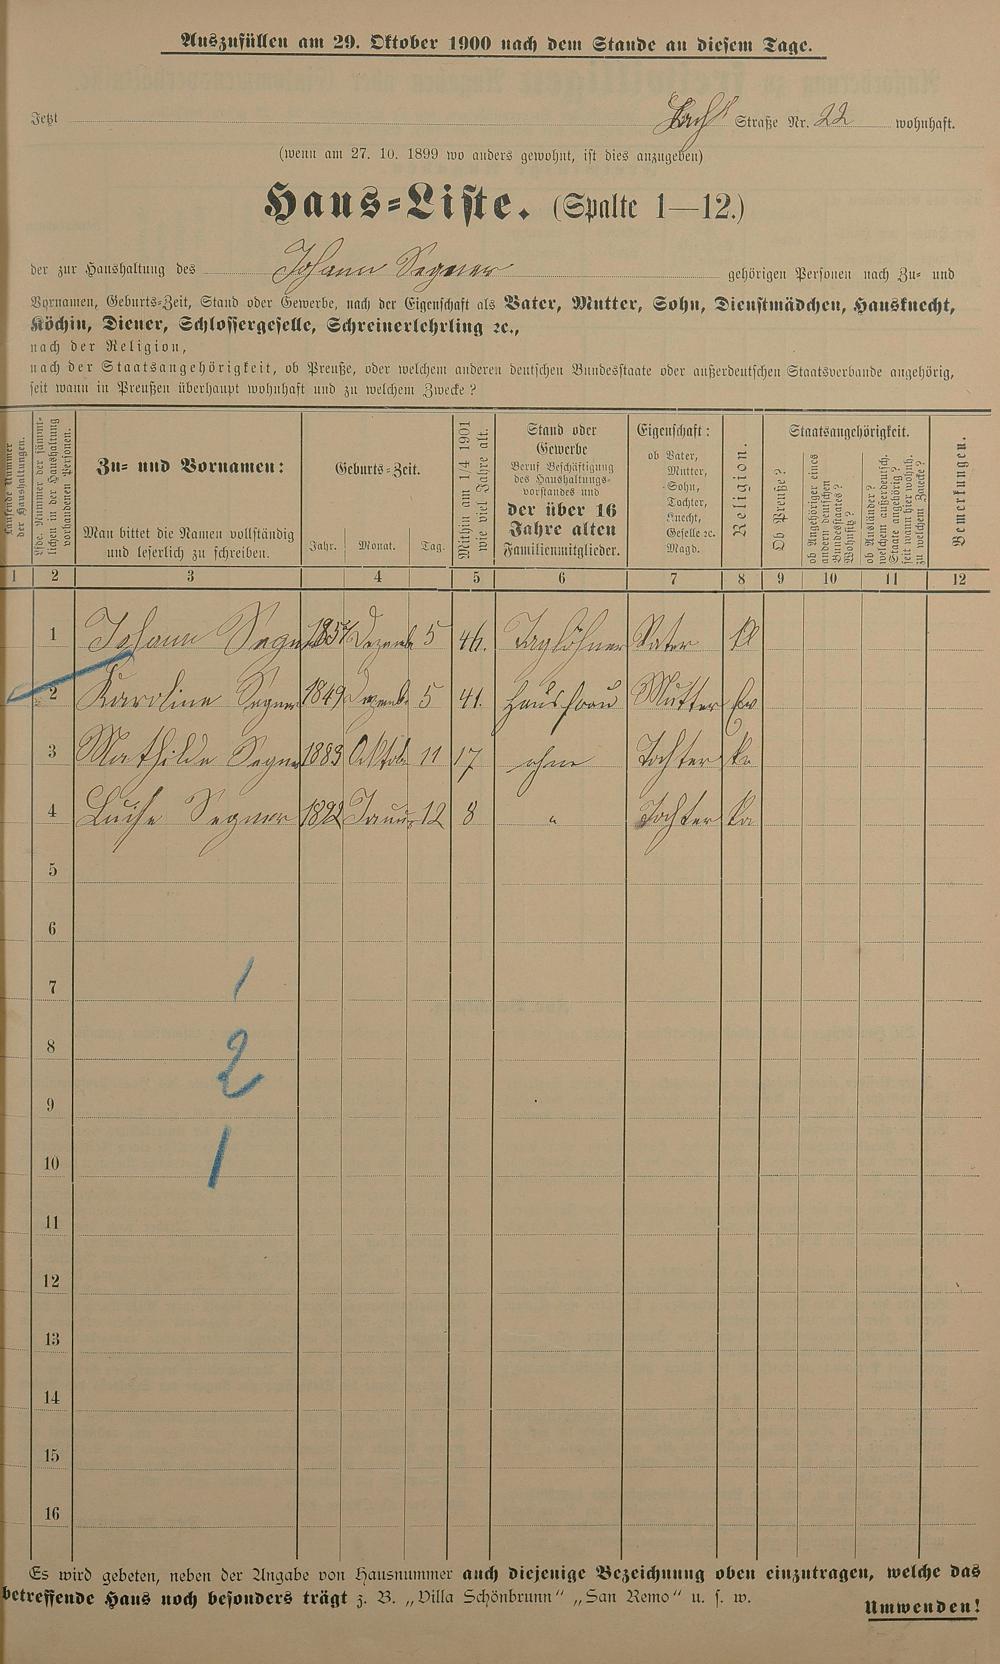 Auszufüllen am 29. Oktober 1900 nach dem Stande an diesem Tage.
Jetzt Bach Straße Nr. 22 wohnhaft.
(wenn am 27. 10. 1899 wo anders gewohnt, ist dies anzugeben)
Haus-Liste. (Spalte 1—12.)
der zur Haushaltung des Johann Segner gehörigen Personen nach Zu- und
Vornamen, Geburts-Zeit, Stand oder Gewerbe, nach der Eigenschaft als Vater, Mutter, Sohn, Dienstmädchen, Hausknecht,
Köchin, Diener, Schlossergeselle, Schreinerlehrling ꝛc.,
nach der Religion,
nach der Staatsangehörigkeit, ob Preuße, oder welchem anderen deutschen Bundesstaate oder außerdeutschen Staatsverbande angehörig,
seit wann in Preußen überhaupt wohnhaft und zu welchem Zwecke?
Laufende Nummer der Haushaltungen.
Lfde. Nummer der sämmtlichen in der Haushaltung vorhandenen Personen.
Zu- und Vornamen:
Man bittet die Namen vollständig
und leserlich zu schreiben.
Geburts-Zeit.
Jahr. Monat. Tag.
Mithin am 1/4 1901
wie viel Jahre alt.
Stand oder
Gewerbe
Beruf Beschäftigung
des Haushaltungs-
vorstandes und
der über 16
Jahre alten
Familienmitglieder.
Eigenschaft:
ob Vater,
Mutter,
Sohn,
Tochter,
Knecht,
Geselle ꝛc.
Magd.
Religion.
Staatsangehörigkeit.
Ob Preuße?
ob Angehöriger eines
andern deutschen
Bundesstaates?
Wohnsitz?
ob Ausländer?
welchem außerdeutsch.
Staate angehörig?
seit wann hier wohnh.
zu welchem Zwecke?
Bemerkungen.
1 2 3 4 5 6 7 8 9 10 11 12
1 Johann Segner Dezemb 5 46. Taglöhner Vater
2 Karoline Segner 1849 Dezemb. 5 41. Hausfrau Mutter Ev
3 Mathilde Segner 1883 Oktob. 11 17 ohne Tochter Ka
4 Luise Segner 1892 Januar 12 8 " Tochter Ka
5
6
7
1
8
2
9
10
1
11
12
13
14
15
16
Es wird gebeten, neben der Angabe von Hausnummer auch diejenige Bezeichnung oben einzutragen, welche das
betreffende Haus noch besonders trägt z. B. „Villa Schönbrunn" „San Remo" u. s. w.
Umwenden!